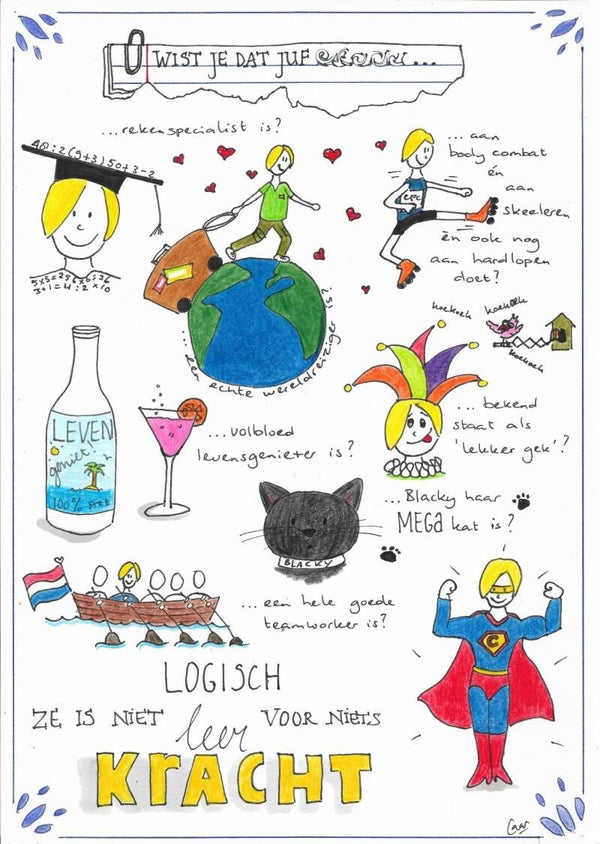 WIST JE DAT JUF ...
...rekenspecialist is?
48:2(9+3)50+3-2
5x5=25 6x6=36
3+1=4:2x10
...een echte wereldreiziger is?
...aan
body combat
én
aan
skeeleren
én ook nog
aan hardlopen
doet?
koekoek koekoek
koekoek
LEVEN
geniet!
100%
...volbloed
levensgenieter is?
...bekend
staat als
'lekker gek'?
BLACKY
...Blacky haar
MEGA kat is?
...een hele goede
teamworker is?
C
LOGISCH
ZE IS NIET VOOR NIETS
leer
KRACHT
Caar